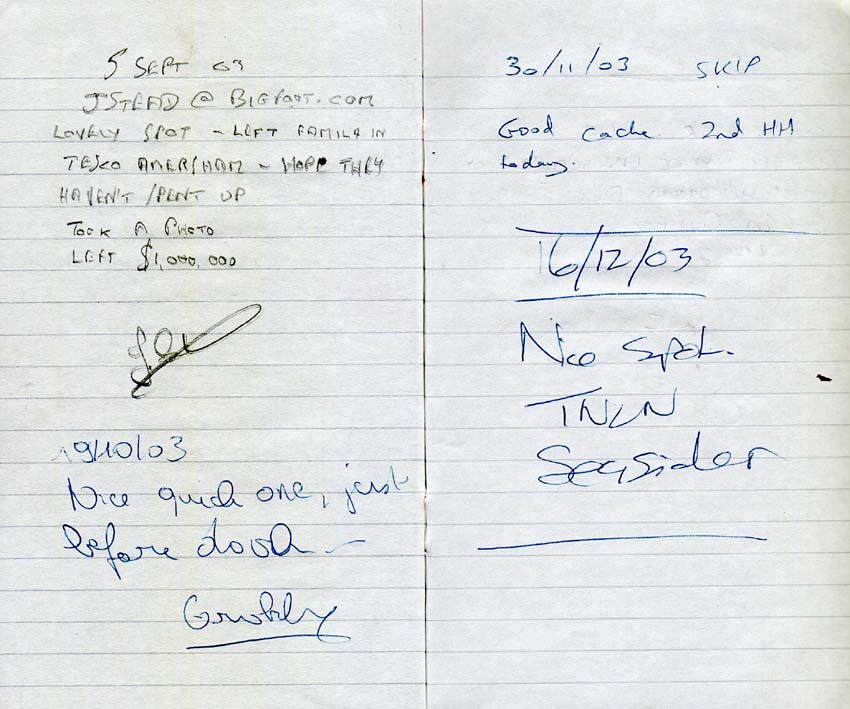 5 SEPT 03
JSTEAD @ BIGFOOT.COM
LOVELY SPOT - LEFT FAMILA IN
TESCO AMERSHAM - HOPE THEY
HAVEN'T SPENT UP
TOOK A PHOTO
LEFT $1,000,000
19/10/03
Nice quick one, just
before dark
Grubbly
30/11/03 SKIP
Good cache. 2nd HH
today.
16/12/03
Nice Spot.
TNLN
Seasider